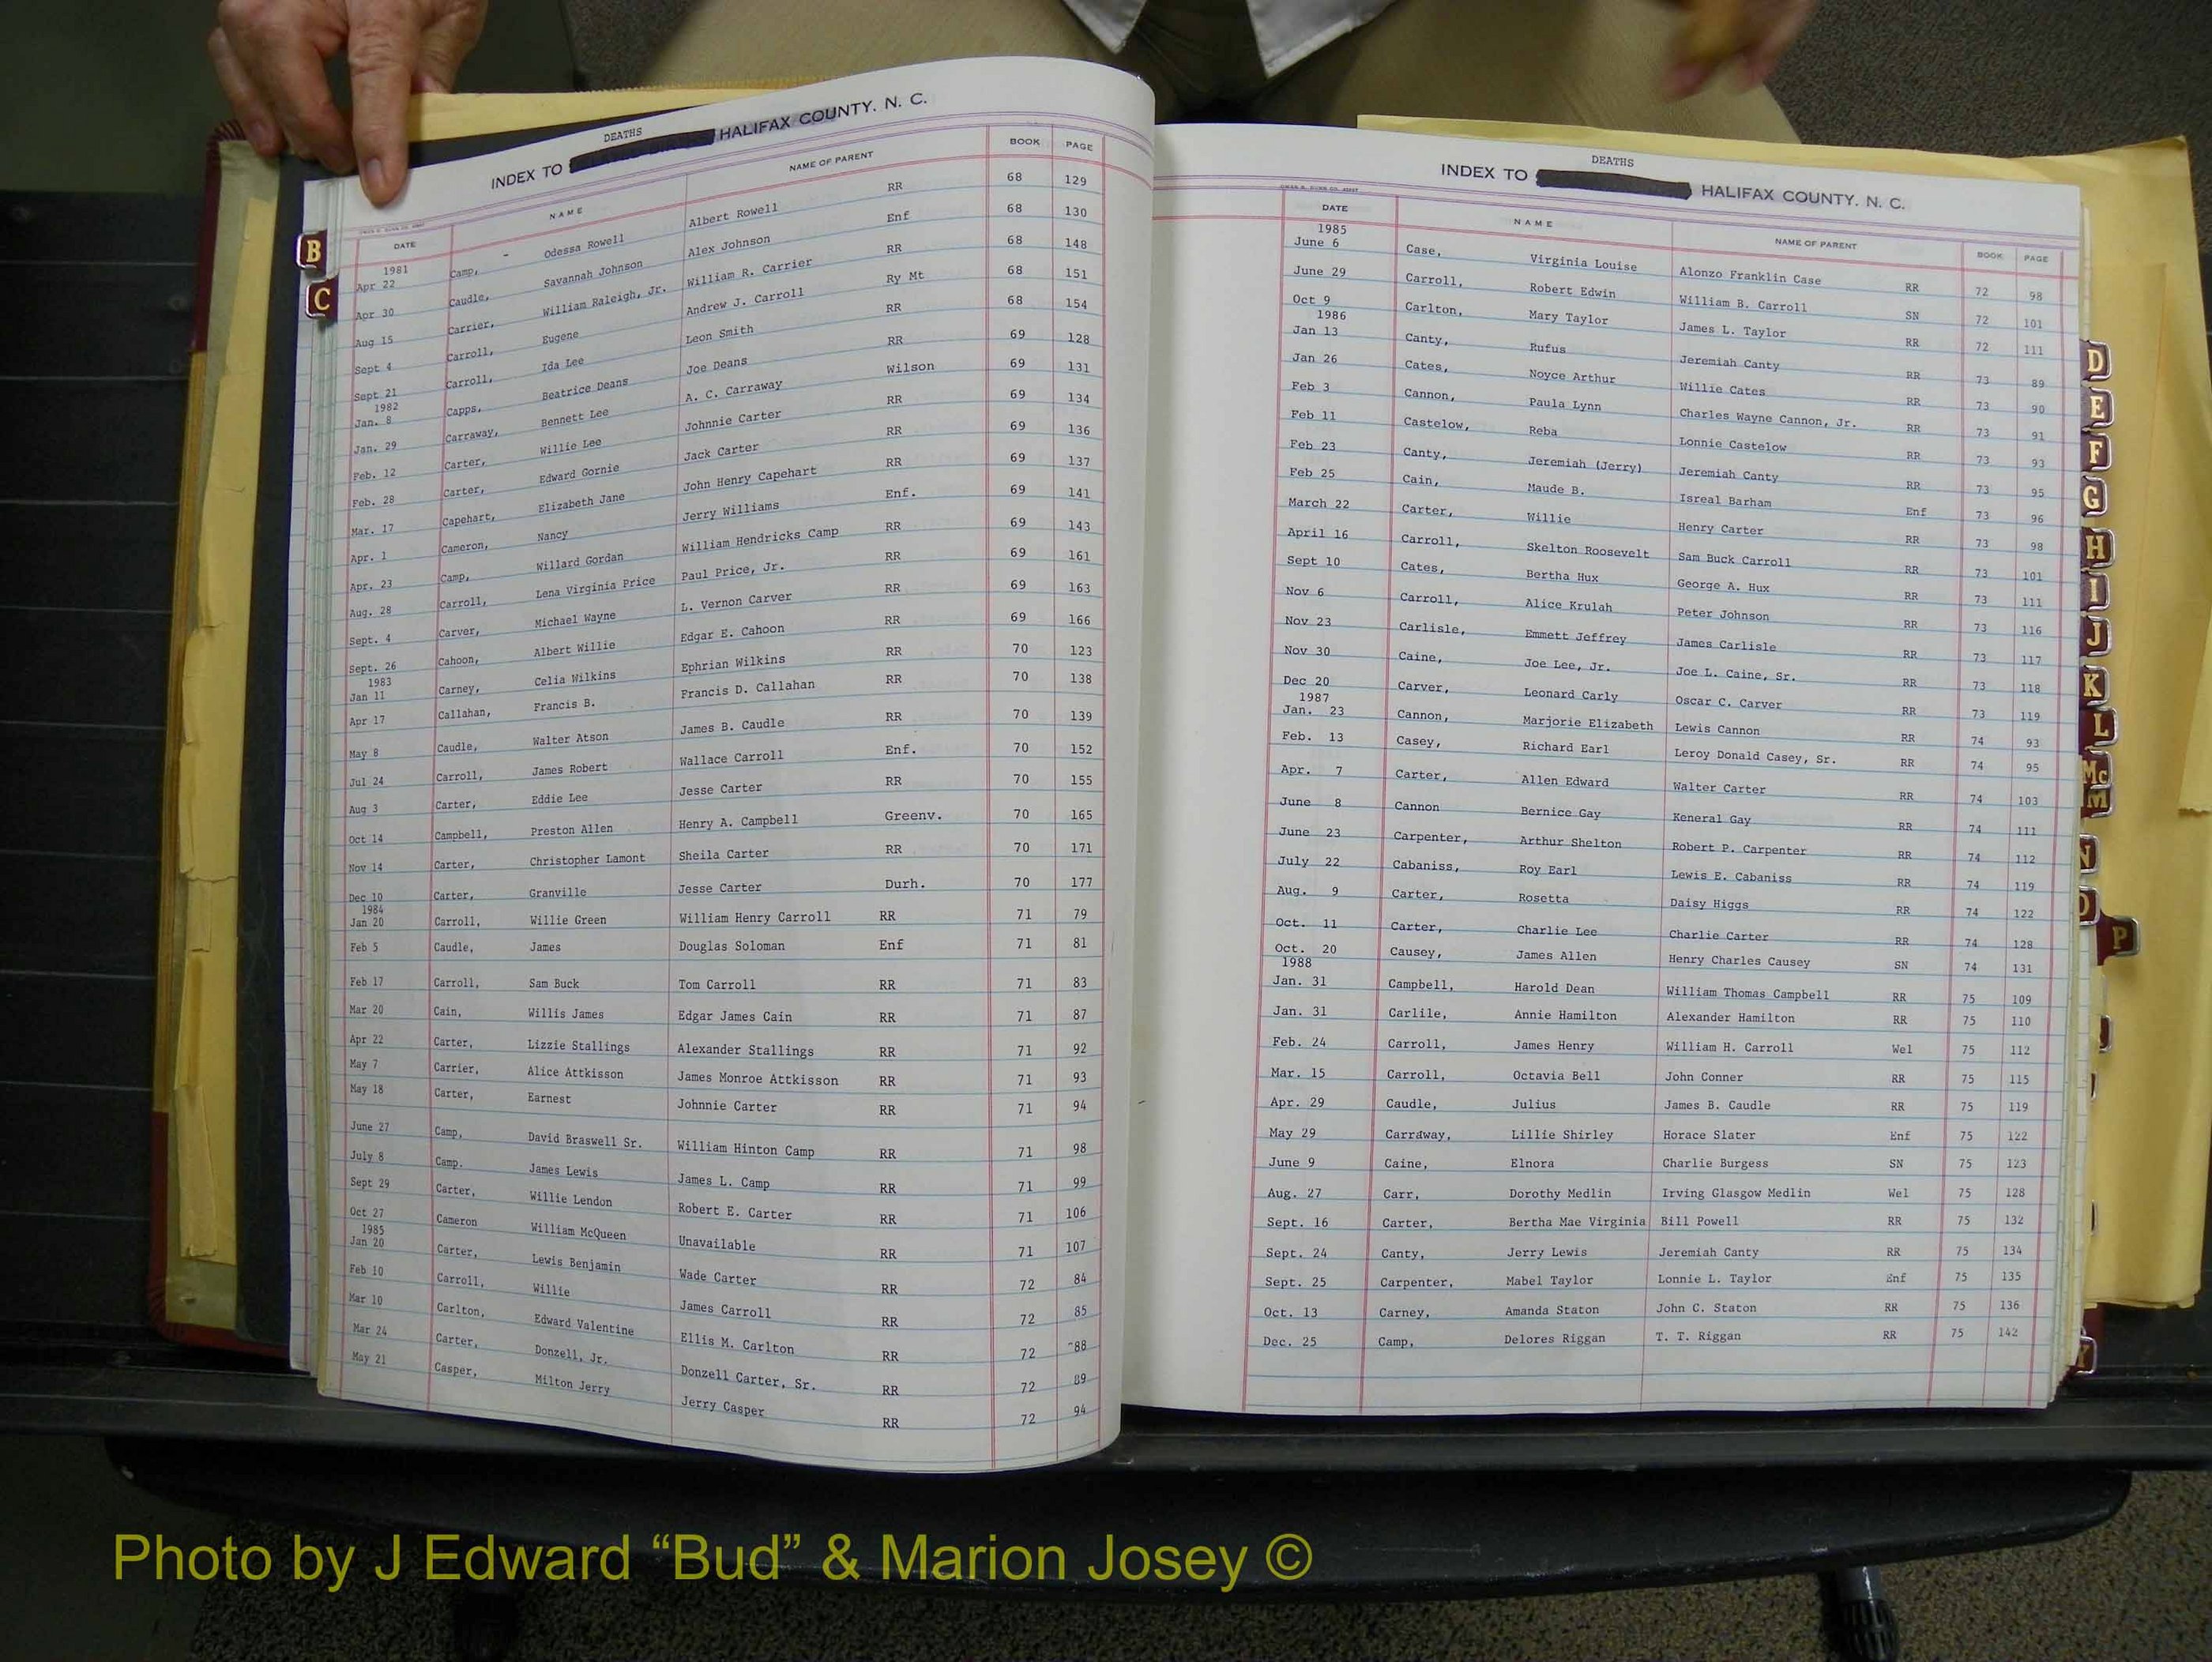 DEATHS
INDEX TO HALIFAX COUNTY. N. C.
DATE NAME NAME OF PARENT BOOK PAGE
1981
Apr 22 Camp, Odessa Rowell Albert Rowell RR 68 129
Apr 30 Caudle, Savannah Johnson Alex Johnson Enf 68 130
Aug 15 Carrier, William Raleigh, Jr. William R. Carrier RR 68 148
Sept 4 Carroll, Eugene Andrew J. Carroll Ry Mt 68 151
Sept 21 Carroll, Ida Lee Leon Smith RR 68 154
1982
Jan. 8 Capps, Beatrice Deans Joe Deans RR 69 128
Jan. 29 Carraway, Bennett Lee A. C. Carraway Wilson 69 131
Feb. 12 Carter, Willie Lee Johnnie Carter RR 69 134
Feb. 28 Carter, Edward Gornie Jack Carter RR 69 136
Mar. 17 Capehart, Elizabeth Jane John Henry Capehart RR 69 137
Apr. 1 Cameron, Nancy Jerry Williams Enf. 69 141
Apr. 23 Camp, Willard Gordan William Hendricks Camp RR 69 143
Aug. 28 Carroll, Lena Virginia Price Paul Price, Jr. RR 69 161
Sept. 4 Carver, Michael Wayne L. Vernon Carver RR 69 163
Sept. 26 Cahoon, Albert Willie Edgar E. Cahoon RR 69 166
1983
Jan 11 Carney, Celia Wilkins Ephrian Wilkins RR 70 123
Apr 17 Callahan, Francis B. Francis D. Callahan RR 70 138
May 8 Caudle, Walter Atson James B. Caudle RR 70 139
Jul 24 Carroll, James Robert Wallace Carroll Enf. 70 152
Aug 3 Carter, Eddie Lee Jesse Carter RR 70 155
Oct 14 Campbell, Preston Allen Henry A. Campbell Greenv. 70 165
Nov 14 Carter, Christopher Lamont Sheila Carter RR 70 171
Dec 10 Carter, Granville Jesse Carter Durh. 70 177
1984
Jan 20 Carroll, Willie Green William Henry Carroll RR 71 79
Feb 5 Caudle, James Douglas Soloman Enf 71 81
Feb 17 Carroll, Sam Buck Tom Carroll RR 71 83
Mar 20 Cain, Willis James Edgar James Cain RR 71 87
Apr 22 Carter, Lizzie Stallings Alexander Stallings RR 71 92
May 7 Carrier, Alice Attkisson James Monroe Attkisson RR 71 93
May 18 Carter, Earnest Johnnie Carter RR 71 94
June 27 Camp, David Braswell Sr. William Hinton Camp RR 71 98
July 8 Camp. James Lewis James L. Camp RR 71 99
Sept 29 Carter, Willie Lendon Robert E. Carter RR 71 106
Oct 27 Cameron William McQueen Unavailable RR 71 107
1985
Jan 20 Carter, Lewis Benjamin Wade Carter RR 72 84
Feb 10 Carroll, Willie James Carroll RR 72 85
Mar 10 Carlton, Edward Valentine Ellis M. Carlton RR 72 88
Mar 24 Carter, Donzell, Jr. Donzell Carter, Sr. RR 72 89
May 21 Casper, Milton Jerry Jerry Casper RR 72 94
B
C
DEATHS
INDEX TO HALIFAX COUNTY. N. C.
DATE NAME NAME OF PARENT BOOK PAGE
1985
June 6 Case, Virginia Louise Alonzo Franklin Case RR 72 98
June 29 Carroll, Robert Edwin William B. Carroll SN 72 101
Oct 9 Carlton, Mary Taylor James L. Taylor RR 72 111
1986
Jan 13 Canty, Rufus Jeremiah Canty RR 73 89
Jan 26 Cates, Noyce Arthur Willie Cates RR 73 90
Feb 3 Cannon, Paula Lynn Charles Wayne Cannon, Jr. RR 73 91
Feb 11 Castelow, Reba Lonnie Castelow RR 73 93
Feb 23 Canty, Jeremiah (Jerry) Jeremiah Canty RR 73 95
Feb 25 Cain, Maude B. Isreal Barham Enf 73 96
March 22 Carter, Willie Henry Carter RR 73 98
April 16 Carroll, Skelton Roosevelt Sam Buck Carroll RR 73 101
Sept 10 Cates, Bertha Hux George A. Hux RR 73 111
Nov 6 Carroll, Alice Krulah Peter Johnson RR 73 116
Nov 23 Carlisle, Emmett Jeffrey James Carlisle RR 73 117
Nov 30 Caine, Joe Lee, Jr. Joe L. Caine, Sr. RR 73 118
Dec 20 Carver, Leonard Carly Oscar C. Carver RR 73 119
1987
Jan. 23 Cannon, Marjorie Elizabeth Lewis Cannon RR 74 93
Feb. 13 Casey, Richard Earl Leroy Donald Casey, Sr. RR 74 95
Apr. 7 Carter, Allen Edward Walter Carter RR 74 103
June 8 Cannon Bernice Gay Keneral Gay RR 74 111
June 23 Carpenter, Arthur Shelton Robert P. Carpenter RR 74 112
July 22 Cabaniss, Roy Earl Lewis E. Cabaniss RR 74 119
Aug. 9 Carter, Rosetta Daisy Higgs RR 74 122
Oct. 11 Carter, Charlie Lee Charlie Carter RR 74 128
Oct. 20 Causey, James Allen Henry Charles Causey SN 74 131
1988
Jan. 31 Campbell, Harold Dean William Thomas Campbell RR 75 109
Jan. 31 Carlile, Annie Hamilton Alexander Hamilton RR 75 110
Feb. 24 Carroll, James Henry William H. Carroll Wel 75 112
Mar. 15 Carroll, Octavia Bell John Conner RR 75 115
Apr. 29 Caudle, Julius James B. Caudle RR 75 119
May 29 Carraway, Lillie Shirley Horace Slater Enf 75 122
June 9 Caine, Elnora Charlie Burgess SN 75 123
Aug. 27 Carr, Dorothy Medlin Irving Glasgow Medlin Wel 75 128
Sept. 16 Carter, Bertha Mae Virginia Bill Powell RR 75 132
Sept. 24 Canty, Jerry Lewis Jeremiah Canty RR 75 134
Sept. 25 Carpenter, Mabel Taylor Lonnie L. Taylor Enf 75 135
Oct. 13 Carney, Amanda Staton John C. Staton RR 75 136
Dec. 25 Camp, Delores Riggan T. T. Riggan RR 75 142
D
E
F
G
H
I
J
K
L
Mc
M
N
O
P
Y
Photo by J Edward “Bud” & Marion Josey ©